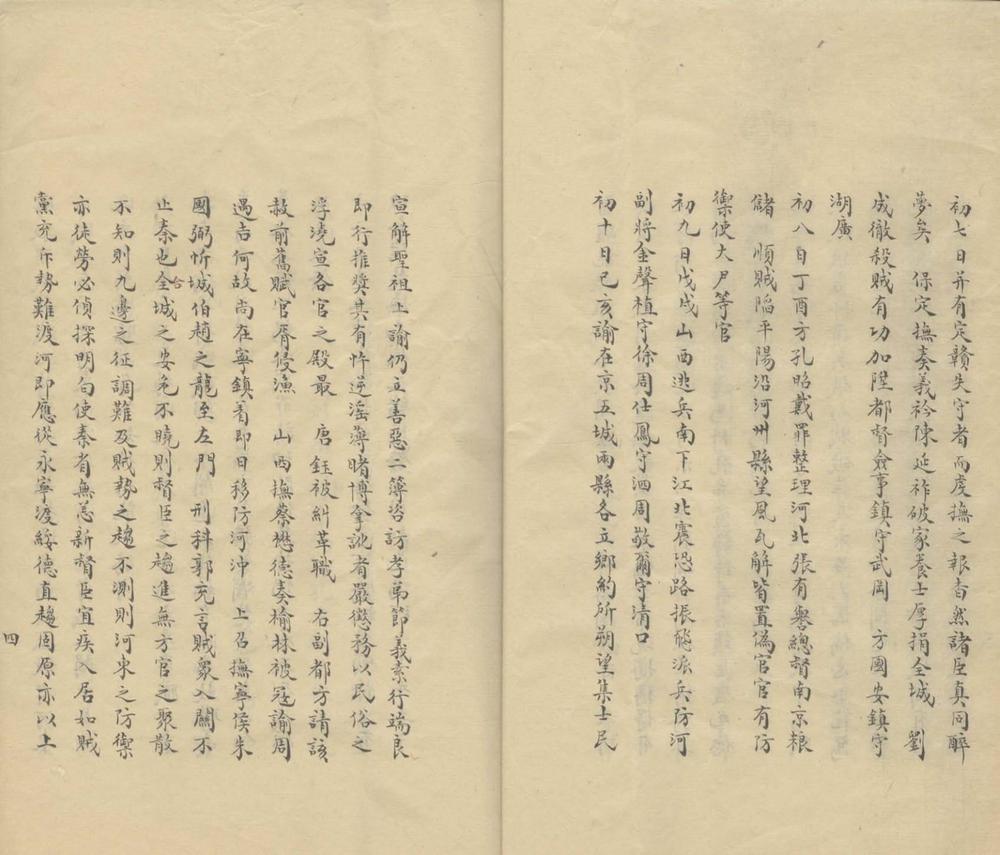 初七日并有定贛失守者而虔撫之報杳然諸臣真同醉
夢矣　保定撫奏義衿陳延祚破家養士厚捐全城　劉
成徹殺賊有功加陞都督僉事鎮守武岡　方國安鎮守
湖廣
初八日丁酉方孔昭戴罪整理河北張有譽總督南京粮
儲　順賊陷平陽沿河州縣望風瓦解皆置偽官官有防
禦使大尹等官
初九日戊戌山西逃兵南下江北震恐路振飛派兵防河
副將金聲植守徐周仕鳳守泗周敬爾守清口
初十日己亥諭在京五城兩縣各立鄉約所朔望集士民
宣解聖祖上諭仍立善惡二簿咨訪孝弟節義素行端良
即行推獎其有忤逆淫薄賭博拿訛者嚴懲務以民俗之
浮澆宣各官之殿最　唐鈺被糾革職　右副都方請該
赦前舊賦官胥侵漁　山西撫蔡懋德奏榆林被寇諭周
遇吉何故尚在寧鎮着即日移防河冲　上召撫寧侯朱
國弼忻城伯趙之龍至左門　刑科郭充言賊衆入關不
止秦也全台城之安危不曉則督臣之趨進無方官之聚散
不知則九邊之征調難及賊勢之趨不測則河東之防禦
亦徒勞必偵探明白使秦省無恙新督臣宜疾入居如賊
黨充斥勢難渡河即應從永寧渡綏德直趨固原亦以上
四